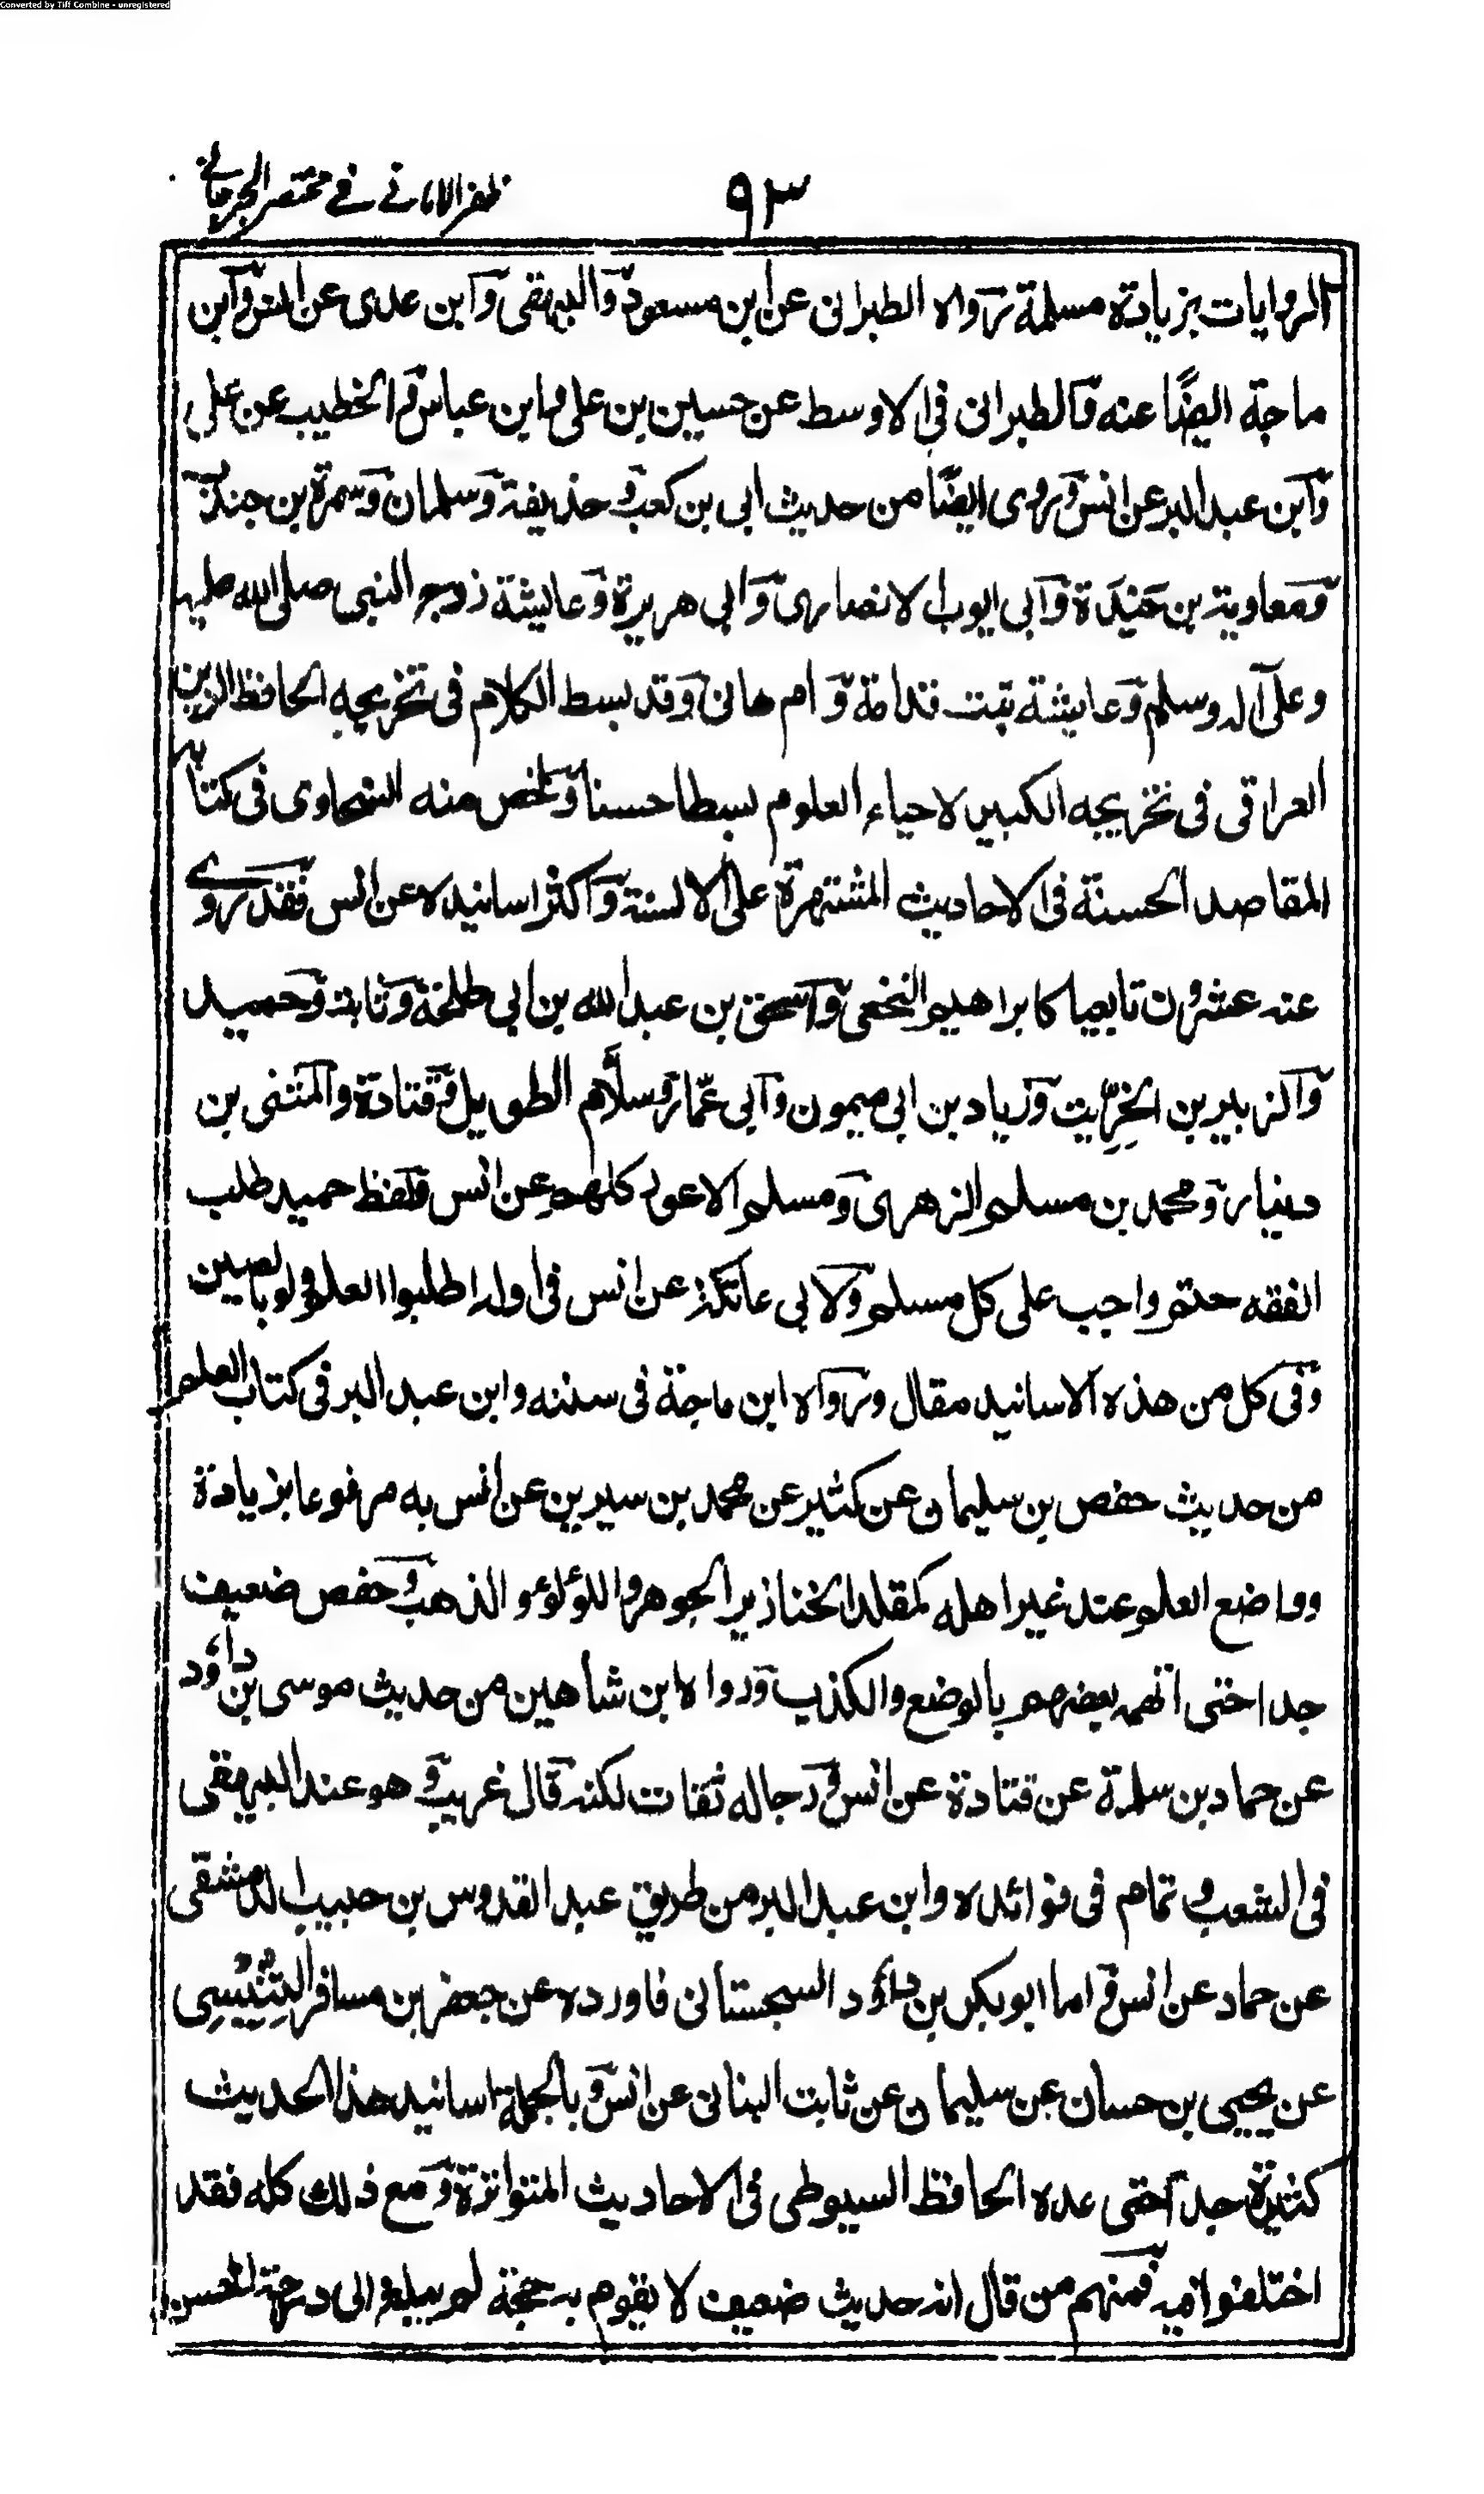 Converted by Tiff Combine - unregistered
٩٣
ظفر الامانى فى مختصر الجرجانى
الروايات بزيادة مسلمة رواه الطبرانى عن ابن مسعود والبيهقى وابن عدى عن انس وابن
ماجة ايضًا عنه والطبرانى فى الاوسط عن حسين بن على وابن عباس والخطيب عن على
وابن عبد البر عن انس وروى ايضًا من حديث ابى بن كعب وحذيفة وسلمان وسمرة بن جندب
ومعاوية بن حَيدَة وابى ايوب الانصارى وابى هريرة وعايشة زوج النبى صلى الله عليه
وعلى آله وسلم وعايشة بنت قدامة وام هانى وقد بسط الكلام فى تخريجه الحافظ الزين
العراقى فى تخريجه الكبير لاحياء العلوم بسطا حسنا ولخص منه السخاوى فى كتابه
المقاصد الحسنة فى الاحاديث المشتهرة على الالسنة واكثر اسانيده عن انس فقد روى
عنه عشرون تابعيا كابراهيم النخعى واسحق بن عبد الله بن ابى طلحة وثابت وحميد
والزبير بن الخِرِّيت وزياد بن ابى ميمون وابى عمّار وسلّام الطويل وقتادة والمثنى بن
دينار ومحمد بن مسلم الزهرى ومسلم الاعور كلهم عن انس ولفظ حميد طلب
الفقه حتم واجب على كل مسلم ولابى عاتكة عن انس فى اوله اطلبوا العلم ولو بالصين
وفى كل من هذه الاسانيد مقال ورواه ابن ماجة فى سننه وابن عبد البر فى كتاب العلم
من حديث حفص بن سليمان عن كثير عن محمد بن سيرين عن انس به مرفوعا بزيادة
وواضع العلم عند غير اهله كمقلد الخنازير الجوهر واللؤلؤ والذهب وحفص ضعيف
جدا حتى اتهمه بعضهم بالوضع والكذب ورواه ابن شاهين من حديث موسى بن داؤد
عن حماد بن سلمة عن قتادة عن انس ورجاله ثقات لكنه قال غريب وهو عند البيهقى
فى الشعب وتمام فى فوائده وابن عبد البر من طريق عبد القدوس بن حبيب الدمشقى
عن حماد عن انس واما ابو بكر بن داؤد السجستانى فاورده عن جعفر بن مسافر التِنِّيسِى
عن يحيى بن حسان عن سليمان عن ثابت البنانى عن انس وبالجملة اسانيد هذا الحديث
كثيرة جدا حتى عده الحافظ السيوطى فى الاحاديث المتواترة ومع ذلك كله فقد
اختلفوا فيه فمنهم من قال انه حديث ضعيف لا يقوم به حجة لم يبلغ الى درجة الحسن